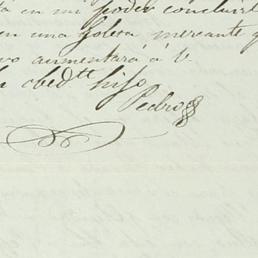 en mi poder concluir
en una Goleta mercante q
vo aumentará á V
obedtt hijo
Pedro